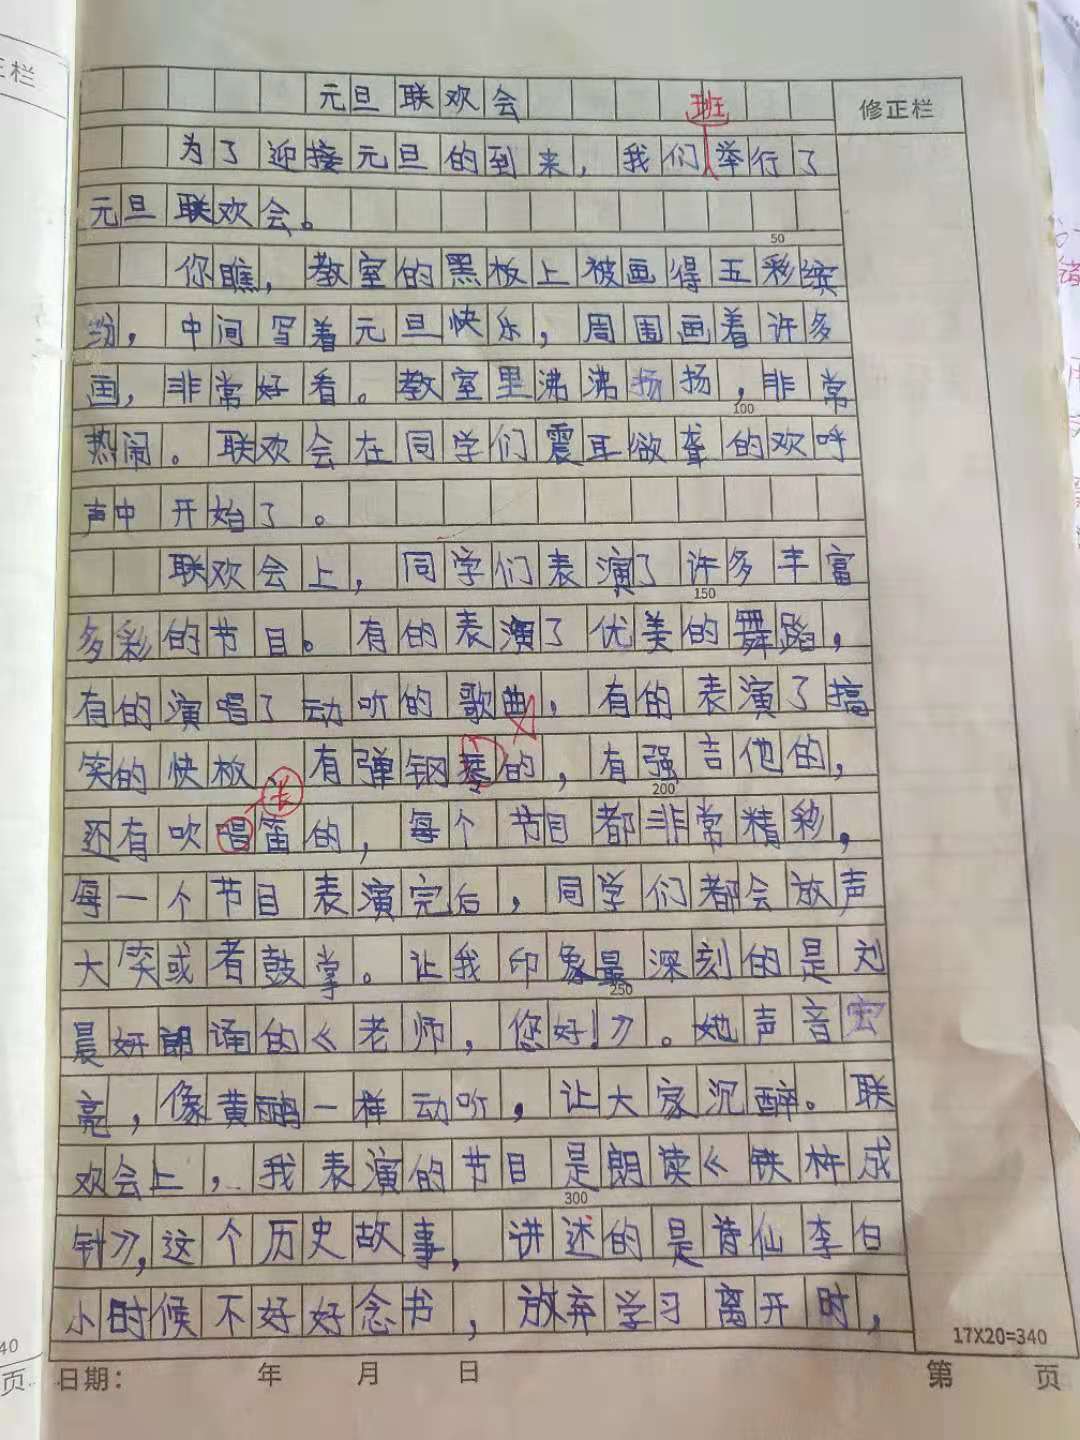 正栏
元旦联欢会
班
修正栏
为了迎接元旦的到来，我们举行了
元旦联欢会。
50
你瞧，教室的黑板上被画得五彩缤
纷，中间写着元旦快乐，周围画着许多
画，非常好看。教室里沸沸扬扬，非常
100
热闹。联欢会在同学们震耳欲聋的欢呼
声中开始了。
联欢会上，同学们表演了许多丰富
150
多彩的节目。有的表演了优美的舞蹈，
有的演唱了动听的歌曲，有的表演了搞
笑的快板、有弹钢琴的，有强吉他的，
200
长
还有吹唱笛的，每个节目都非常精彩，
每一个节目表演完后，同学们都会放声
大笑或者鼓掌。让我印象最深刻的是刘
250
晨妍朗诵的《老师，您好！》。她声音宏
亮，像黄鹂一样动听，让大家沉醉。联
欢会上，我表演的节目是朗读《铁杵成
300
针》，这个历史故事，讲述的是诗仙李白
小时候不好好念书，放弃学习离开时，
17X20=340
40
页
日期：　年　月　日
第　页